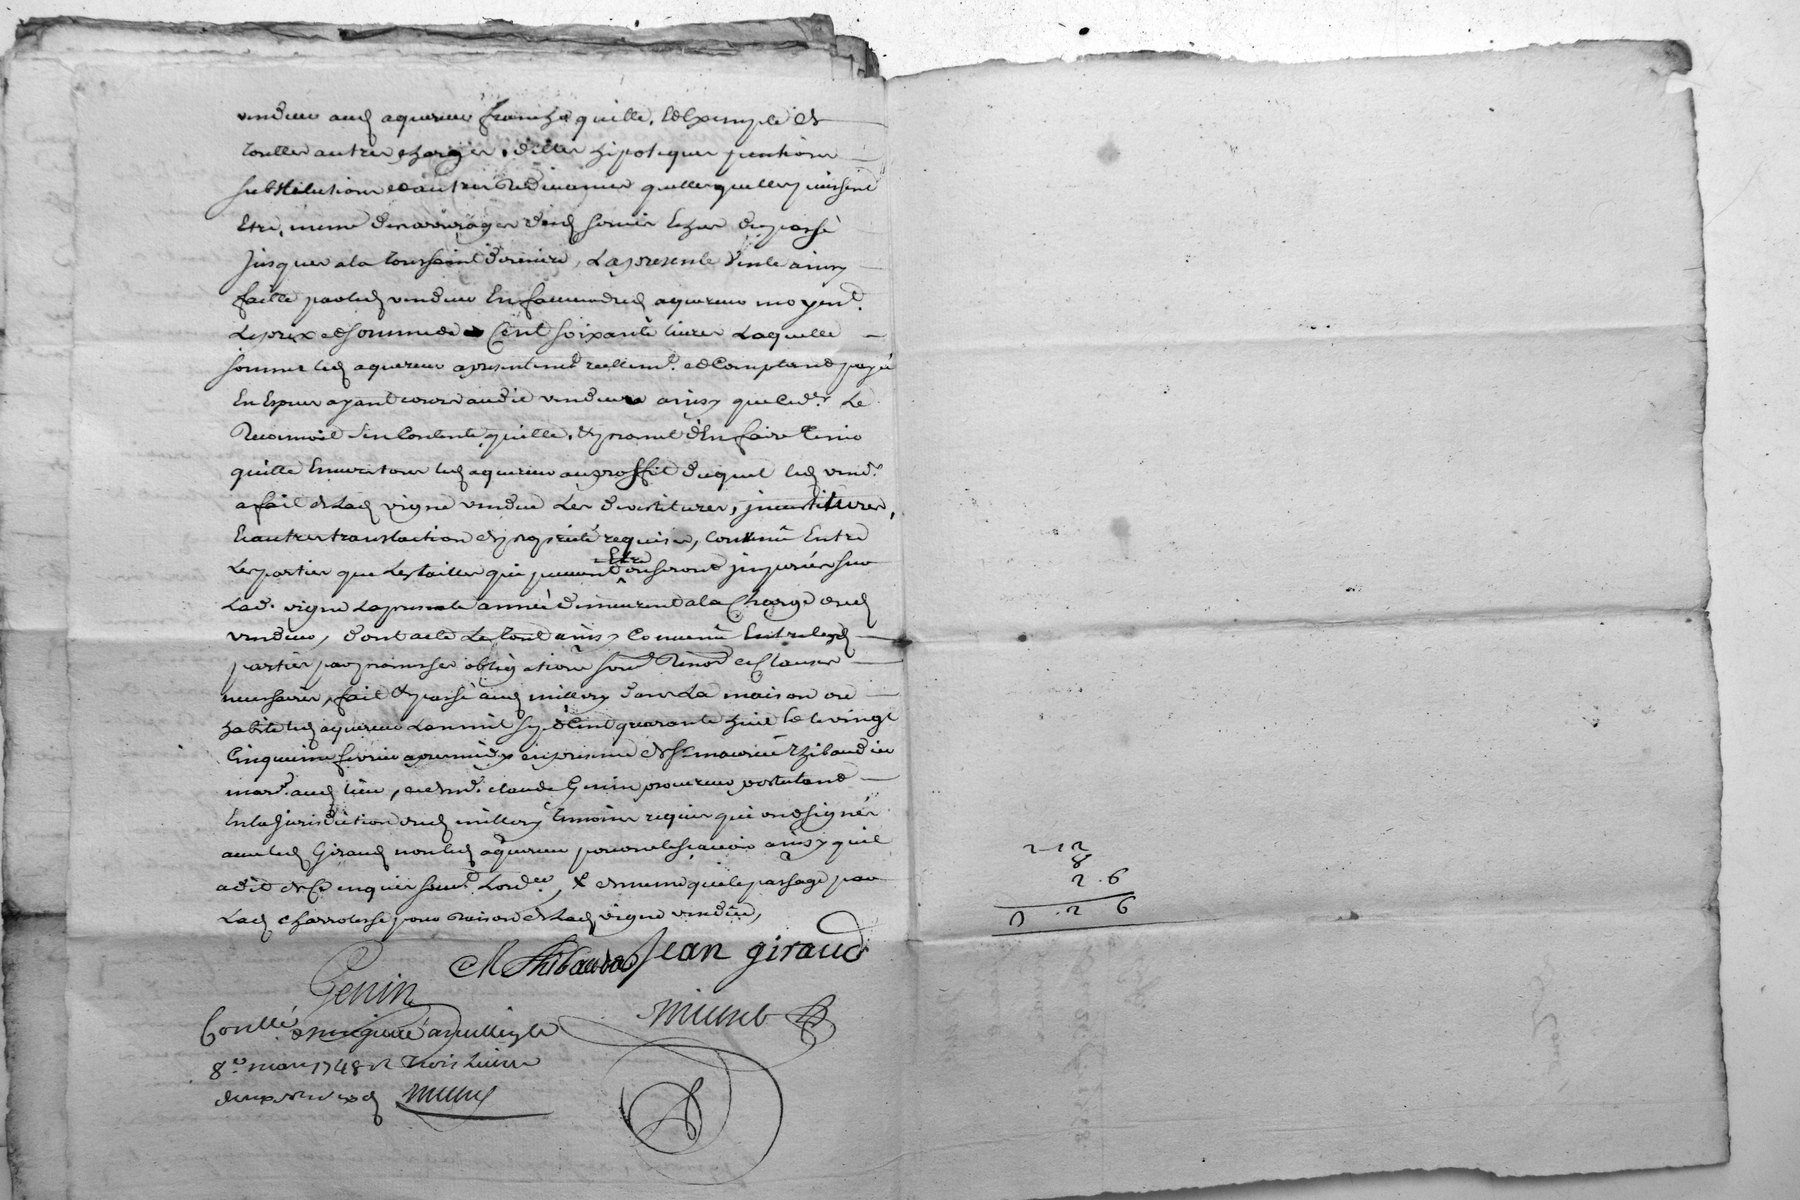 vendeur aud aquereur franche quitte, et exempte de
touttes autres charges, dettes hipoteques pentions
substitutions et autres redevances quelles quelles puissent
Etre, meme d'arrerages dud servis Echus du passé
jusques a la toussaint derniere, La presente vente ainsy
faitte par led vendeur En faveur dud aquereur moyent.
Le prix et somme de Cent soixante livres Laquelle
somme led aquereur a presentemt reellemt. et Comptant payé
En Espece ayant cours audit vendeur ainsy que led. Le
Reconnoit s'en Contente quitte, et promet d'En faire tenir
quitte Envers tous led aquereur au proffit duquel led vendr.
a fait de Lad vigne vendue Les devestitures, jnvestitures,
Et autres translaction de proprieté requises, Convenû Entre
Les parties que Les tailles qui peuvent Etre ou seront jmposées sur
Lad. vigne La presente année demeurent a la Charge dud
vendeur, dont acte Le tout ainsy Convenu Entre lesd
parties par promesses obligations soumd Renond et Clauses
necessaires, fait et passé aud millery dans La maison ou
habite led aquereur L'an mil sept Cent quarante huit et le vingt
Cinquieme fevrier apres midy en presence de sr maurice thibaudier
mard. aud lieu, et de me. claude Genin procureur postulant
En la Jurisdiction dud millery temoins requis qui ont signés
avec led Giraud non led aquereur pour ne le sçavoir ainsy qu'il
a dit de Ce enquis et sommé Lordce, de meme que le passage par
Lad charroterse pour Raison de Lad vigne vendue,
M Thibaudier Jean giraud
Genin
Contllé a millery le
8e. mars 1748 R trois livres
deux
2 12
8
2 . 6
3 . 2 6